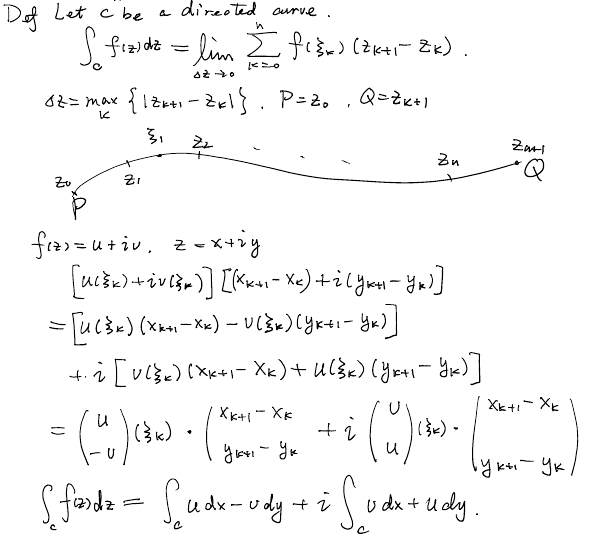 Def Let C be a directed curve.
∫_C f(z)dz = lim_{Δz→0} ∑_{k=0}^{n} f(ξ_k)(z_{k+1} - z_k).
Δz = max_k {|z_{k+1} - z_k|}. P = z_0, Q = z_{k+1}
z_0 P z_1 ξ_1 z_2 . . . z_n z_{n+1} Q
f(z) = u + iv. z = x + iy
[u(ξ_k) + iv(ξ_k)] [(x_{k+1} - x_k) + i(y_{k+1} - y_k)]
= [u(ξ_k)(x_{k+1} - x_k) - v(ξ_k)(y_{k+1} - y_k)]
+ i [v(ξ_k)(x_{k+1} - x_k) + u(ξ_k)(y_{k+1} - y_k)]
= (u, -v)(ξ_k) · (x_{k+1} - x_k, y_{k+1} - y_k) + i (v, u)(ξ_k) · (x_{k+1} - x_k, y_{k+1} - y_k)
∫_C f(z)dz = ∫_C u dx - v dy + i ∫_C v dx + u dy.